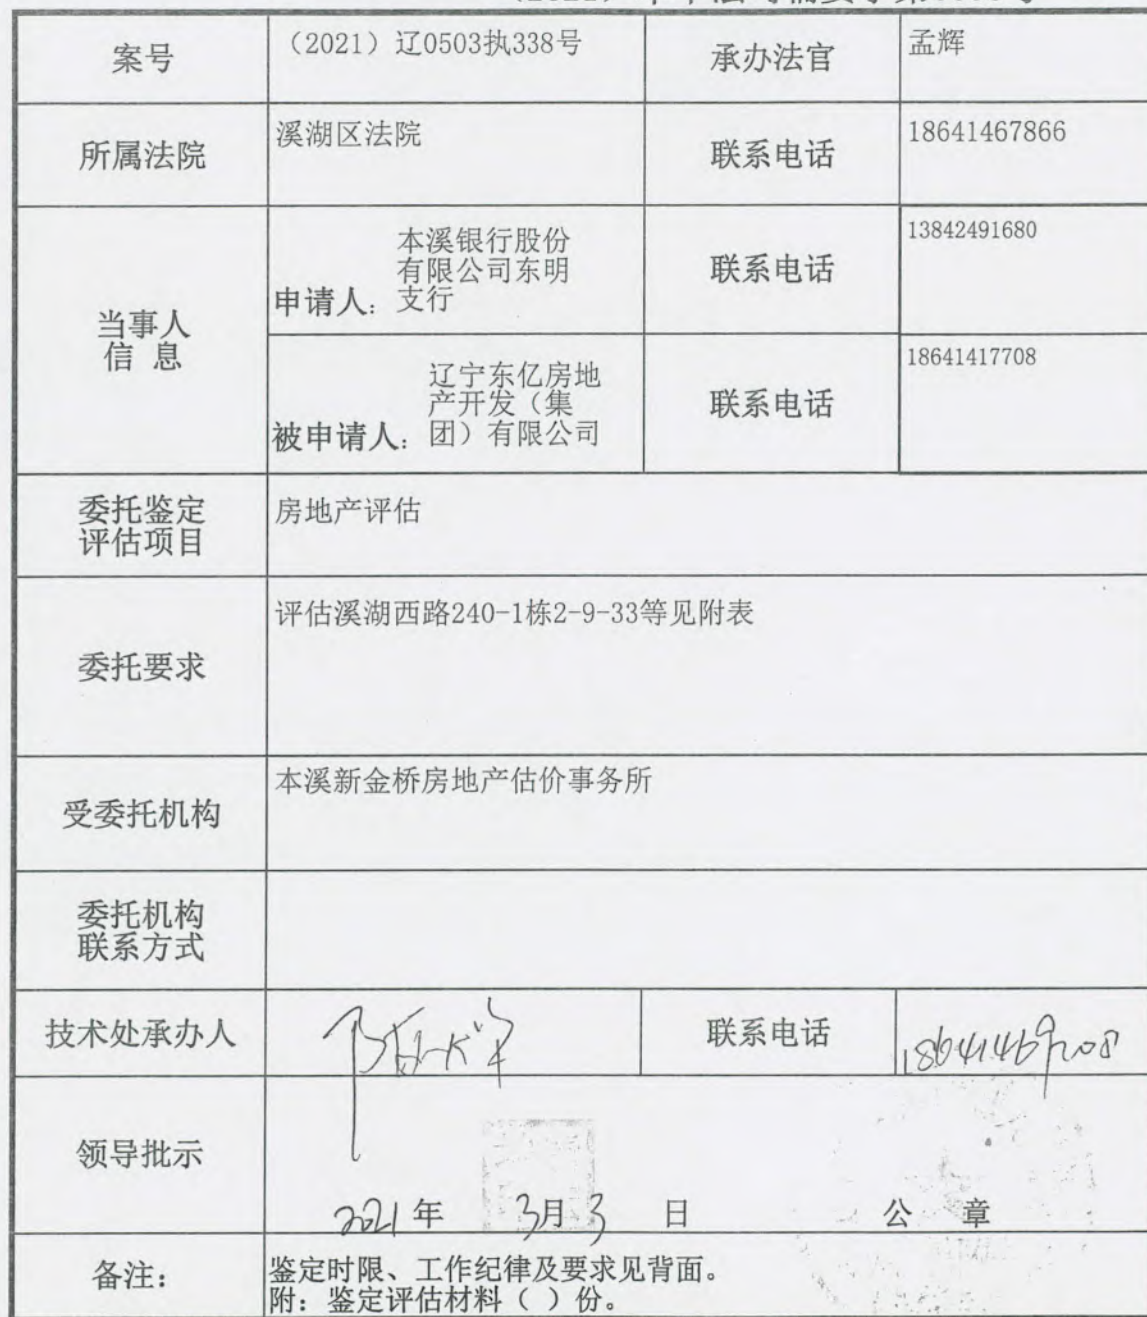 案号
（2021）辽0503执338号
承办法官
孟辉
所属法院
溪湖区法院
联系电话
18641467866
当事人
信 息
申请人：
本溪银行股份
有限公司东明
支行
联系电话
13842491680
被申请人：
辽宁东亿房地
产开发（集
团）有限公司
联系电话
18641417708
委托鉴定
评估项目
房地产评估
委托要求
评估溪湖西路240-1栋2-9-33等见附表
受委托机构
本溪新金桥房地产估价事务所
委托机构
联系方式
技术处承办人
联系电话
领导批示
2021 年 3月 3 日 公 章
备注：
鉴定时限、工作纪律及要求见背面。
附：鉴定评估材料（ ）份。